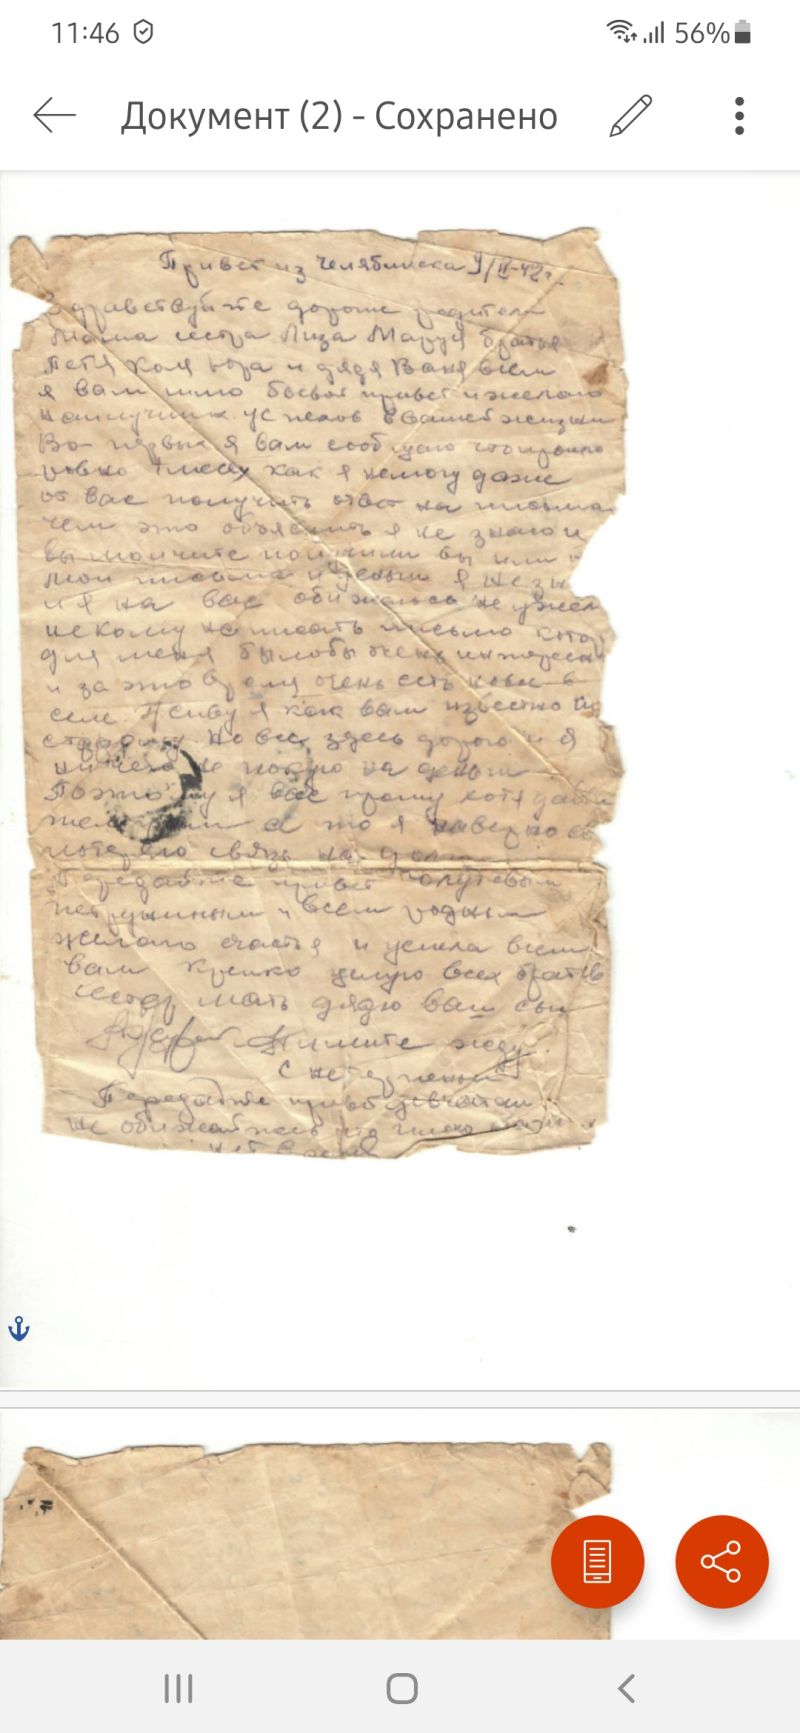 11:46
56%
Документ (2) - Сохранено
Привет из Челябинска 9/II-42г.
Здравствуйте дорогие родители
мама сестра Лиза Маруся братья
Петя Коля Юра и дядя Ваня всем
я вам шлю боевой привет и желаю
наилучших успехов в вашей жизни
Во-первых я вам сообщаю что прошло
ровно месяц как я немогу даже
от вас получить ответ на письма
чем это объяснить я не знаю и
вы молчите получили вы или
мои письма и деньги я не
и я на вас обижаюсь не
некому написать письмо
для меня былобы очень
и за это время очень есть в
селе. Живу я как вам известно
но все здесь дорого и я
ничего не на деньги
Поэтому я вас прошу хотя
а то я наверно
потеряю связь на
Передайте привет
и всем родным
желаю счастья и успеха всем
вам крепко целую всех братьев
сестер мать дядю ваш сын
Пишите жду.
С нетерпением
Передайте привет девчатам
не обижайтесь что
нет время